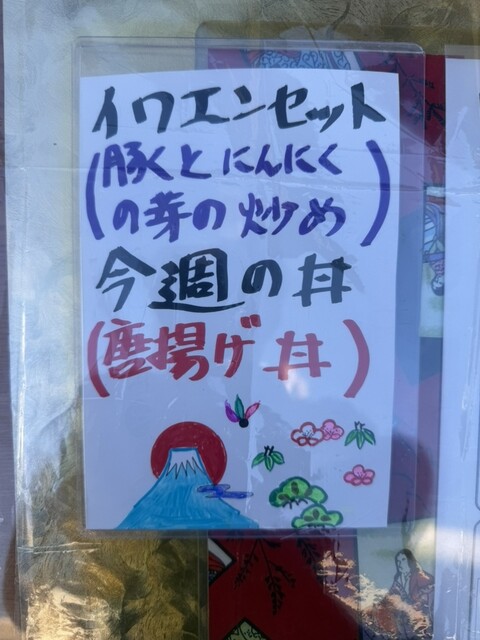 イワエンセット
(豚くとにんにく
の芽の炒め)
今週の丼
(唐揚げ丼)